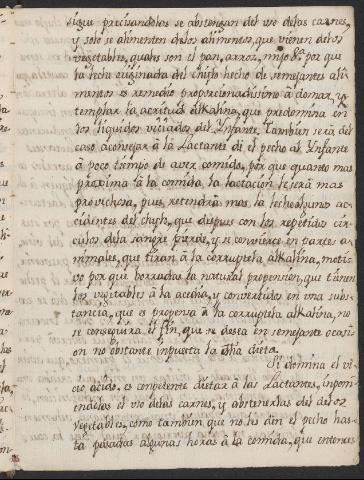 sugue precisandolas se abstengan del uso delas carnes,
y solo se alimenten delos alimentos, que vienen delos
vegetables, quales son el pan, arroz, mijo &a por que
la leche originada del chylo hecho de semejantes ali
mentos es remedio proporcionadissimo â domar, y
templar la acritud alkalina, que predomina en
los liquidos viciados del Infante. Tambien serà del
caso aconsejar â la Lactante dé el pecho al Infante
â poco tiempo de aver comido, por que quanto mas
proxima à la comida la lactacion le serà mas
provechosa, pues retendrà mas la leche algunos ac
cidentes del chylo, que despues con los repetidos cir
culos dela sangre pierde, y se convierte en partes a
nimales, que tiran â la corruptela alkalina, motì
vo por que borrada la natural propension, que tienen
los vegetables â la acedia, y convertidos en una subs
tancia, que es propensa â la corruptela alkalina, no
se conseguirà el fin, que se desea en semejante ocasi
on no obstante inpuesta la dha dieta.
Si domina el vi
cio acido, es conveniente dietar â las Lactantes, inpom
endolas el uso delas carnes, y abstenerlas del delos
vegetables, como tambien que no les dèn el pecho has
ta pasadas algunas horas â la comida, que entonces